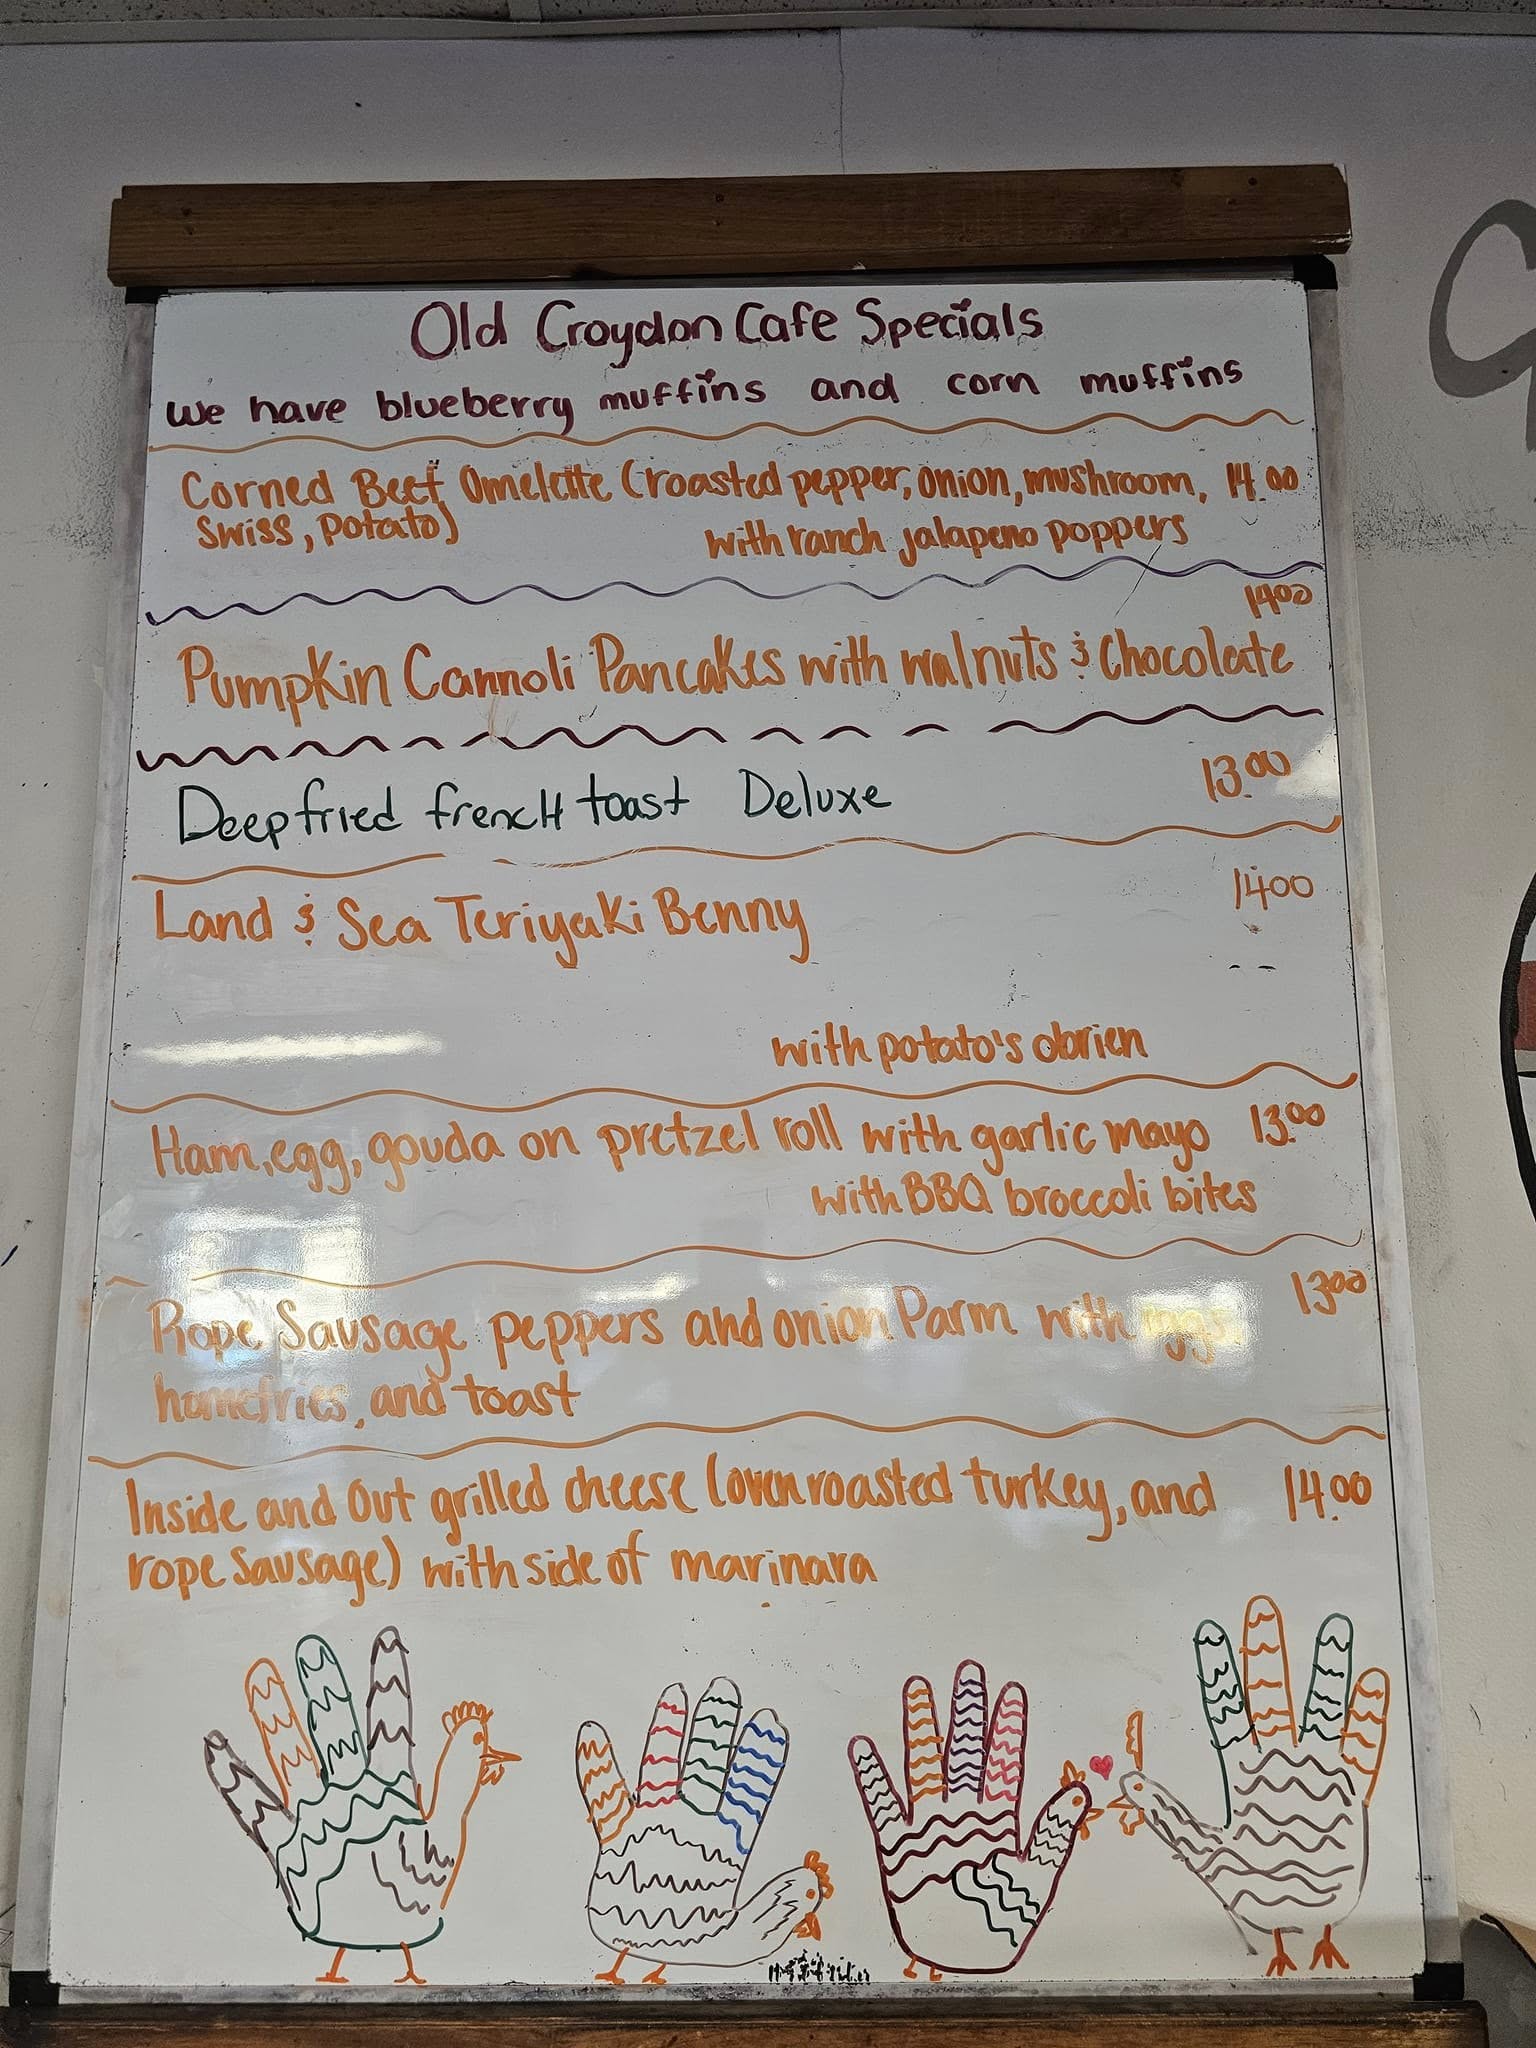 Old Croydon Cafe Specials
We have blueberry muffins and corn muffins
Corned Beef Omelette (roasted pepper, onion, mushroom, 14.00
Swiss, potato)
with ranch jalapeno poppers
14.00
Pumpkin Cannoli Pancakes with walnuts & Chocolate
Deep fried french toast Deluxe 13.00
Land & Sea Teriyaki Benny 14.00
with potato's obrien
Ham, egg, gouda on pretzel roll with garlic mayo 13.00
with BBQ broccoli bites
13.00
Rope Sausage peppers and onion Parm with eggs,
homefries, and toast
Inside and Out grilled cheese (oven roasted turkey, and 14.00
rope sausage) with side of marinara